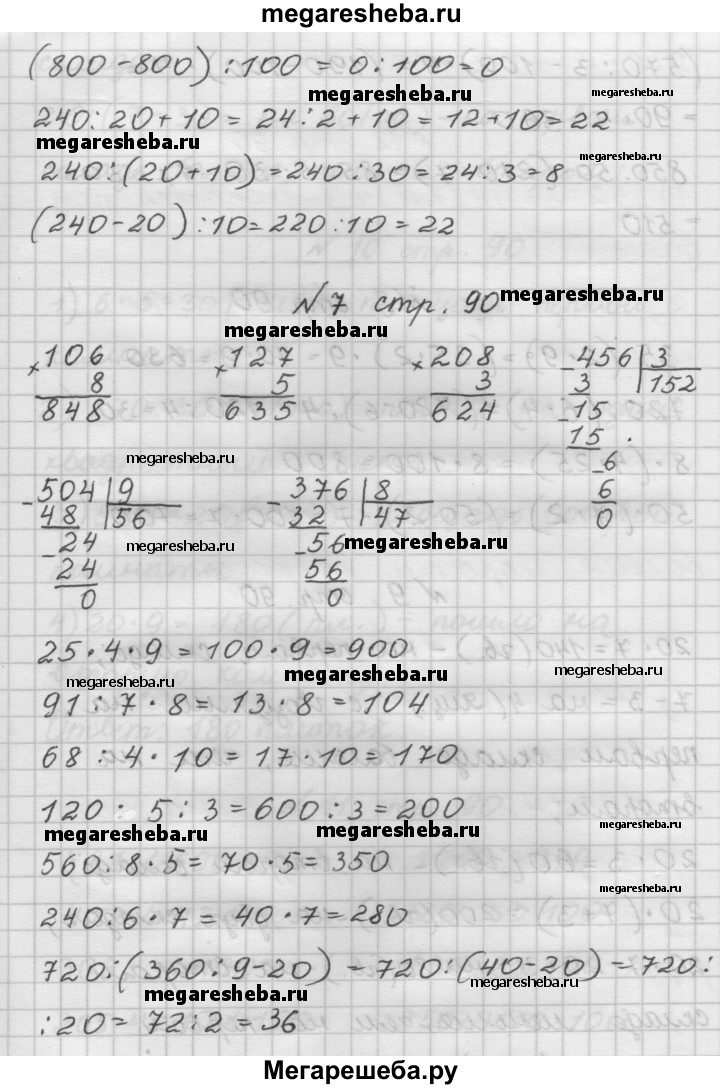 megaresheba.ru
(800-800):100=0:100=0
megaresheba.ru
megaresheba.ru
240:20+10=24:2+10=12+10=22
megaresheba.ru
megaresheba.ru
240:(20+10)=240:30=24:3=8
(240-20):10=220:10=22
N7 стр. 90
megaresheba.ru
megaresheba.ru
×106 ×127 ×208 -456 3
8 5 3 3 152
848 635 624 -15
15
-6
6
0
megaresheba.ru
-504 9 -376 8
48 56 32 47
-24 -56
24 56
0 0
megaresheba.ru
megaresheba.ru
25·4·9=100·9=900
megaresheba.ru
megaresheba.ru
megaresheba.ru
91:7·8=13·8=104
68:4·10=17·10=170
120: 5:3=600:3=200
megaresheba.ru
megaresheba.ru
megaresheba.ru
560:8·5=70·5=350
megaresheba.ru
240:6·7=40·7=280
720:(360:9-20)=720:(40-20)=720:
megaresheba.ru
megaresheba.ru
:20=72:2=36
Мегарешеба.ру